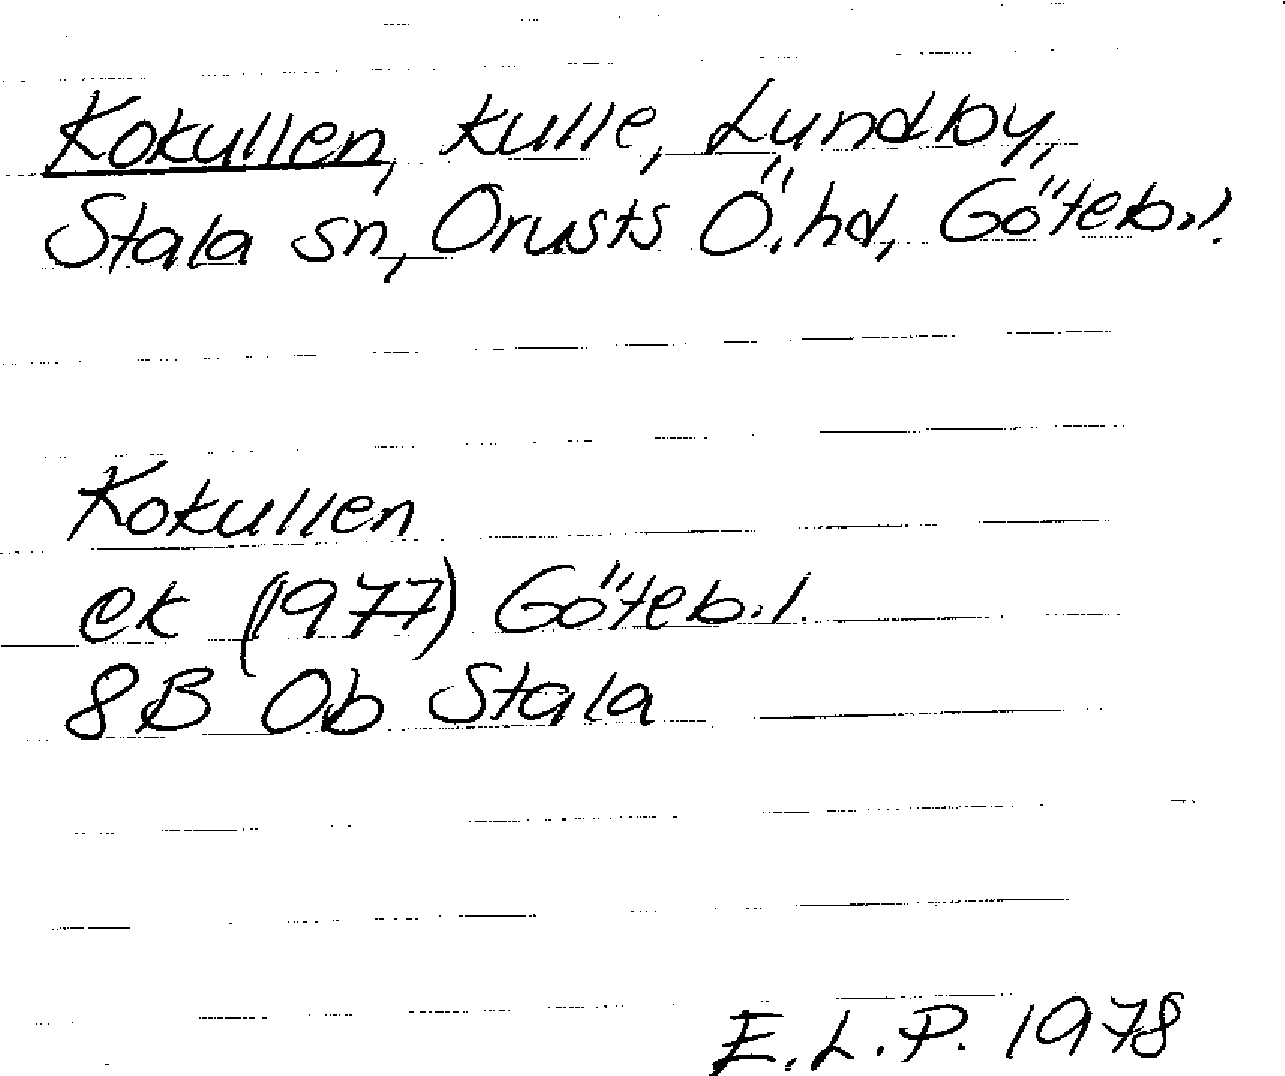 Kokullen, kulle, Lundby,
Stala sn, Orusts Ö. hd, Göteb.l.
Kokullen
ek (1977) Göteb.l.
8B 0b Stala
E.L.P. 1978